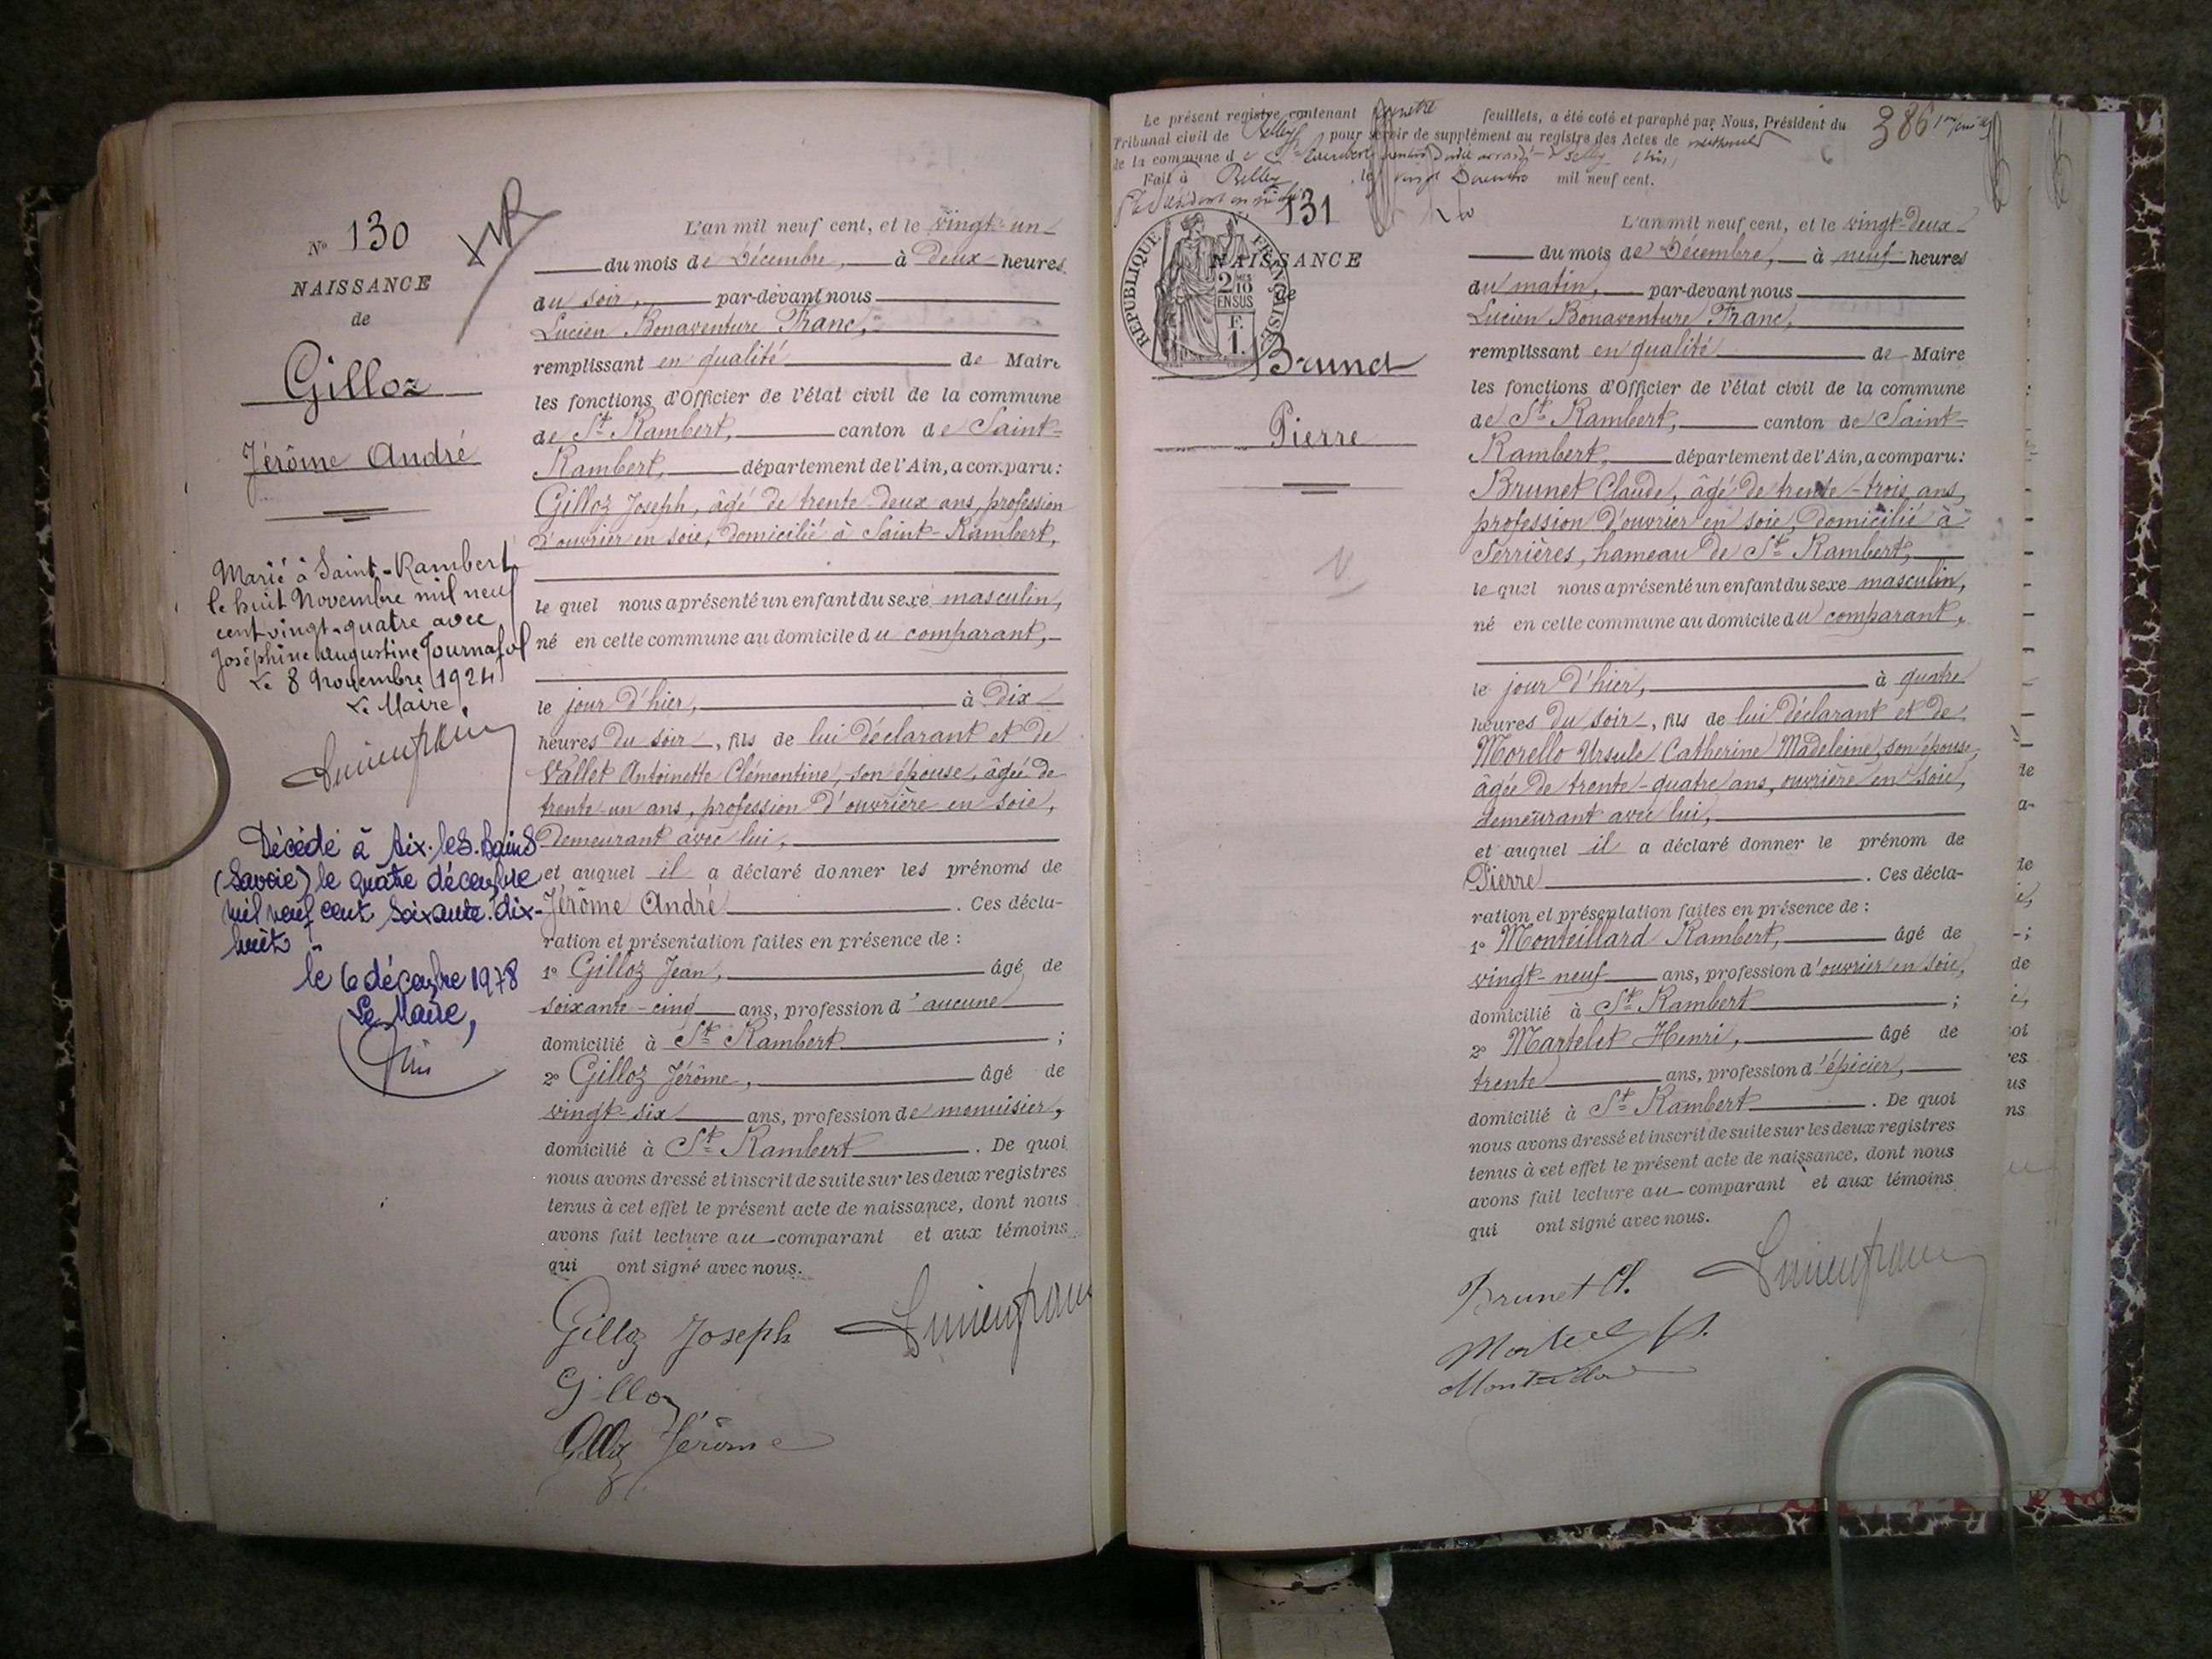 Nº 130
NAISSANCE
de
Gilloz
Jérôme André
Marié à Saint-Rambert
le huit Novembre mil neuf
cent vingt-quatre avec
Joséphine Augustine Tournafol
Le 8 Novembre 1924
Le Maire,
Lucien Franc
Décédé à Aix-les-Bains
(Savoie) le quatre décembre
mil neuf cent soixante-dix-
huit
le 6 décembre 1978
Le Maire,
L'an mil neuf cent, et le vingt-un
du mois de Décembre, à deux heures
du soir, par-devant nous
Lucien Bonaventure Franc,
remplissant en qualité de Maire
les fonctions d'Officier de l'état civil de la commune
de St Rambert, canton de Saint-
Rambert, département de l'Ain, a comparu:
Gilloz Joseph, âgé de trente-deux ans, profession
d'ouvrier en soie, domicilié à Saint-Rambert,
le quel nous a présenté un enfant du sexe masculin,
né en cette commune au domicile du comparant,
le jour d'hier, à dix
heures du soir, fils de lui déclarant et de
Vallet Antoinette Clémentine, son épouse, âgée de
trente-un ans, profession d'ouvrière en soie,
demeurant avec lui,
et auquel il a déclaré donner les prénoms de
Jérôme André. Ces décla-
ration et présentation faites en présence de :
1º Gilloz Jean, âgé de
soixante-cinq ans, profession d'aucune
domicilié à St Rambert ;
2º Gilloz Jérôme, âgé de
vingt-six ans, profession de menuisier,
domicilié à St Rambert. De quoi
nous avons dressé et inscrit de suite sur les deux registres
tenus à cet effet le présent acte de naissance, dont nous
avons fait lecture au comparant et aux témoins
qui ont signé avec nous.
Gilloz Joseph Lucien Franc
Gilloz
Gilloz Jérôme
Le présent registre contenant feuillets, a été coté et paraphé par Nous, Président du
Tribunal civil de Belley pour servir de supplément au registre des Actes de
de la commune de St Rambert
Fait à Belley, le vingt Décembre mil neuf cent.
386
131
REPUBLIQUE FRANÇAISE
2/10 EN SUS
F. 1.
NAISSANCE
de
Brunet
Pierre
L'an mil neuf cent, et le vingt-deux
du mois de Décembre, à neuf heures
du matin, par-devant nous
Lucien Bonaventure Franc,
remplissant en qualité de Maire
les fonctions d'Officier de l'état civil de la commune
de St Rambert, canton de Saint-
Rambert, département de l'Ain, a comparu:
Brunet Claude, âgé de trente-trois ans,
profession d'ouvrier en soie, domicilié à
Serrières, hameau de St Rambert,
le quel nous a présenté un enfant du sexe masculin,
né en cette commune au domicile du comparant,
le jour d'hier, à quatre
heures du soir, fils de lui déclarant et de
Morello Ursule Catherine Madeleine, son épouse,
âgée de trente-quatre ans, ouvrière en soie,
demeurant avec lui,
et auquel il a déclaré donner le prénom de
Pierre. Ces décla-
ration et présentation faites en présence de :
1º Monteillard Rambert, âgé de
vingt-neuf ans, profession d'ouvrier en soie,
domicilié à St Rambert ;
2º Martelet Henri, âgé de
trente ans, profession d'épicier,
domicilié à St Rambert. De quoi
nous avons dressé et inscrit de suite sur les deux registres
tenus à cet effet le présent acte de naissance, dont nous
avons fait lecture au comparant et aux témoins
qui ont signé avec nous.
Brunet Cl. Lucien Franc